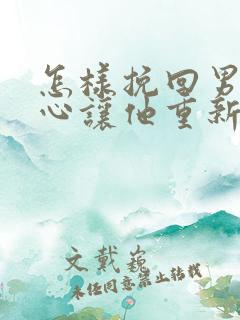 怎樣挽回男
心讓他重新
文戴巍
未经同意禁止转载